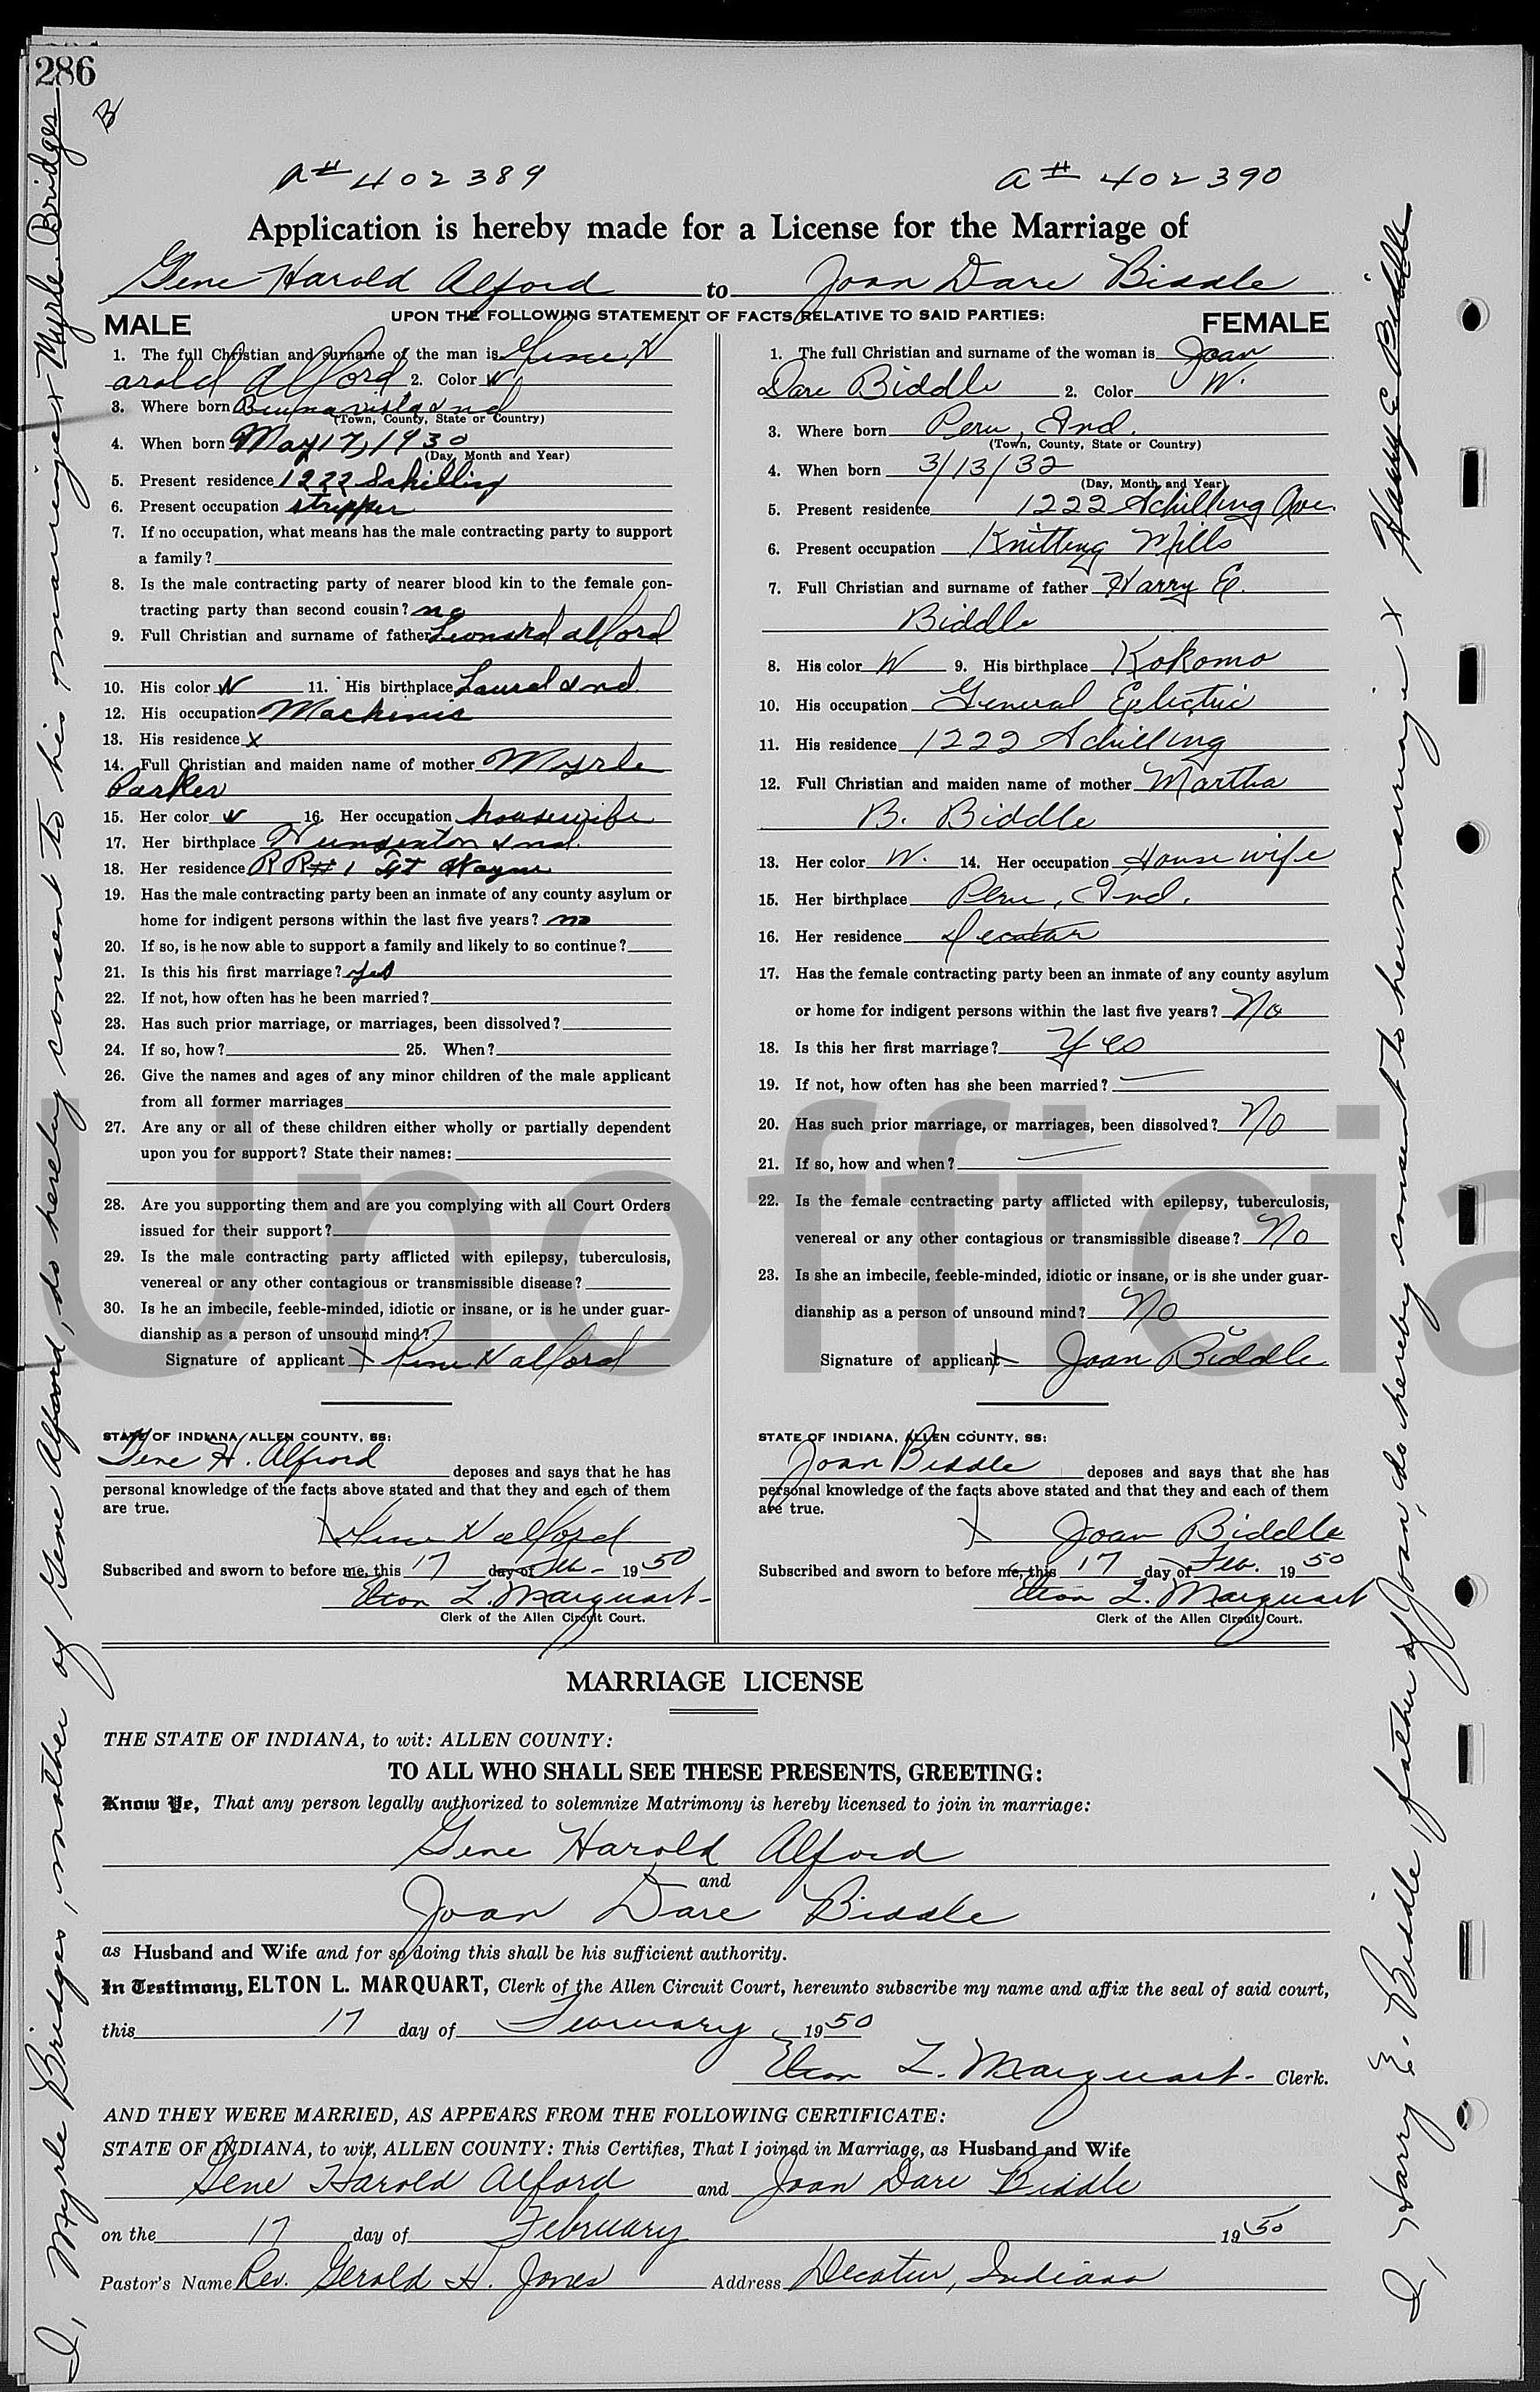 286
B
A# 402389
A# 402390
Application is hereby made for a License for the Marriage of
Gene Harold Alford to Joan Dare Biddle
UPON THE FOLLOWING STATEMENT OF FACTS RELATIVE TO SAID PARTIES:
MALE
1. The full Christian and surname of the man is Gene H
arold Alford 2. Color W
3. Where born Beuna vista Ind
(Town, County, State or Country)
4. When born May 17, 1930
(Day, Month and Year)
5. Present residence 1222 Schilling
6. Present occupation stripper
7. If no occupation, what means has the male contracting party to support
a family?
8. Is the male contracting party of nearer blood kin to the female con-
tracting party than second cousin? no
9. Full Christian and surname of father Leonard Alford
10. His color W 11. His birthplace Laurel Ind.
12. His occupation Machinis
13. His residence X
14. Full Christian and maiden name of mother Myrle
Parker
15. Her color W 16. Her occupation housewife
17. Her birthplace Ind.
18. Her residence R R# 1 Ft Wayne
19. Has the male contracting party been an inmate of any county asylum or
home for indigent persons within the last five years? no
20. If so, is he now able to support a family and likely to so continue?
21. Is this his first marriage? yes
22. If not, how often has he been married?
23. Has such prior marriage, or marriages, been dissolved?
24. If so, how? 25. When?
26. Give the names and ages of any minor children of the male applicant
from all former marriages
27. Are any or all of these children either wholly or partially dependent
upon you for support? State their names:
28. Are you supporting them and are you complying with all Court Orders
issued for their support?
29. Is the male contracting party afflicted with epilepsy, tuberculosis,
venereal or any other contagious or transmissible disease?
30. Is he an imbecile, feeble-minded, idiotic or insane, or is he under guar-
dianship as a person of unsound mind?
Signature of applicant X Gene H Alford
STATE OF INDIANA, ALLEN COUNTY, SS:
Gene H. Alford deposes and says that he has
personal knowledge of the facts above stated and that they and each of them
are true.
X Gene H Alford
Subscribed and sworn to before me, this 17 day of Feb. 1950
Elton L. Marquart
Clerk of the Allen Circuit Court.
FEMALE
1. The full Christian and surname of the woman is Joan
Dare Biddle 2. Color W.
3. Where born Peru, Ind.
(Town, County, State or Country)
4. When born 3/13/32
(Day, Month and Year)
5. Present residence 1222 Schilling Ave.
6. Present occupation Knitting Mills
7. Full Christian and surname of father Harry E.
Biddle
8. His color W 9. His birthplace Kokomo
10. His occupation General Eplectric
11. His residence 1222 Schilling
12. Full Christian and maiden name of mother Martha
B. Biddle
13. Her color W. 14. Her occupation House wife
15. Her birthplace Peru, Ind.
16. Her residence Decatur
17. Has the female contracting party been an inmate of any county asylum
or home for indigent persons within the last five years? No
18. Is this her first marriage? Yes
19. If not, how often has she been married? —
20. Has such prior marriage, or marriages, been dissolved? No
21. If so, how and when? —
22. Is the female contracting party afflicted with epilepsy, tuberculosis,
venereal or any other contagious or transmissible disease? No
23. Is she an imbecile, feeble-minded, idiotic or insane, or is she under guar-
dianship as a person of unsound mind? No
Signature of applicant X Joan Biddle
STATE OF INDIANA, ALLEN COUNTY, SS:
Joan Biddle deposes and says that she has
personal knowledge of the facts above stated and that they and each of them
are true.
X Joan Biddle
Subscribed and sworn to before me, this 17 day of Feb. 1950
Elton L. Marquart
Clerk of the Allen Circuit Court.
MARRIAGE LICENSE
THE STATE OF INDIANA, to wit: ALLEN COUNTY:
TO ALL WHO SHALL SEE THESE PRESENTS, GREETING:
Know Ye, That any person legally authorized to solemnize Matrimony is hereby licensed to join in marriage:
Gene Harold Alford
and
Joan Dare Biddle
as Husband and Wife and for so doing this shall be his sufficient authority.
In Testimony, ELTON L. MARQUART, Clerk of the Allen Circuit Court, hereunto subscribe my name and affix the seal of said court,
this 17 day of February 1950
Elton L. Marquart Clerk.
AND THEY WERE MARRIED, AS APPEARS FROM THE FOLLOWING CERTIFICATE:
STATE OF INDIANA, to wit, ALLEN COUNTY: This Certifies, That I joined in Marriage, as Husband and Wife
Gene Harold Alford and Joan Dare Biddle
on the 17 day of February 1950
Pastor's Name Rev. Gerald H. Jones Address Decatur, Indiana
I, Myrle Bridges, mother of Gene Alford, do hereby consent to his marriage X Myrle Bridges
I, Harry E. Biddle, father of Joan, do hereby consent to her marriage X Harry E Biddle
Unofficia